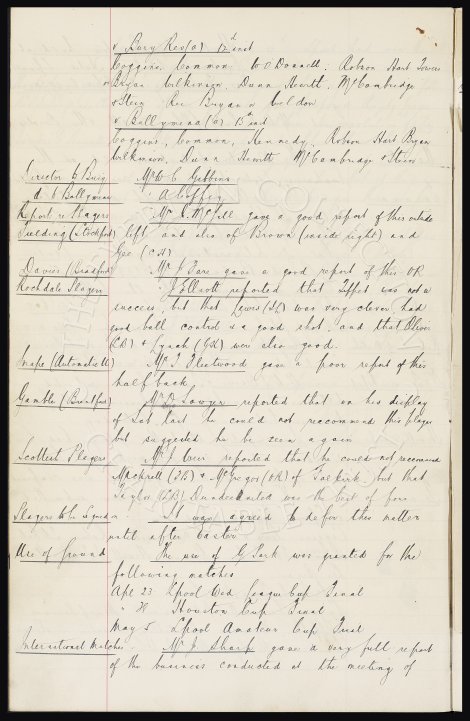 v Bury Res(a) 12th inst
Coggins, Common. W O'Donnell. Robson Hart Towers
Bryan Wilkinson, Dunn Hewitt, McCambridge
Stein Res Bryan & Weldon
v Ballymena (a) 13th inst
Coggins, Common, Kennedy, Robson Hart Bryan
Wilkinson, Dunn Hewitt McCambridge & Stein
Director to Bury Mr W C Gibbins
d. to Ballymena A Coffey
Report re Players Mr C McGill gave a good report of this outside
Fielding (Stockport) left and also of Brown (inside right) and
Gee (CH)
Davies (Bradford) Mr J Fare gave a good report of this OR
Rochdale Players J Elliott reported that Tippet was not a
success, but that Lewis (IL) was very clever, had
good ball control & a good shot, and that Oliver
(RB) & Lynch (GK) were also good.
Snape (Automatic) Mr T Fleetwood gave a poor report of this
half back
Gamble (Brentford) Mr D Sawyer reported that on his display
of Sat last he could not recommend this player
but suggested he be seen again
Scottish Players Mr J Weir reported that he could not recommend
& McGregor (OR) of Falkirk, but that
Taylor (LB) Dundee United was the best of four
Players to be Signed It was agreed to defer this matter
until after Easter
Use of Ground The use of G Park was granted for the
following matches
Apl 23 Lpool Wed League Cup Final
" 28 Houston Cup Final
May 5 Lpool Amateur Cup Final
International Matches Mr J Sharp gave a very full report
of the business conducted at the meeting of